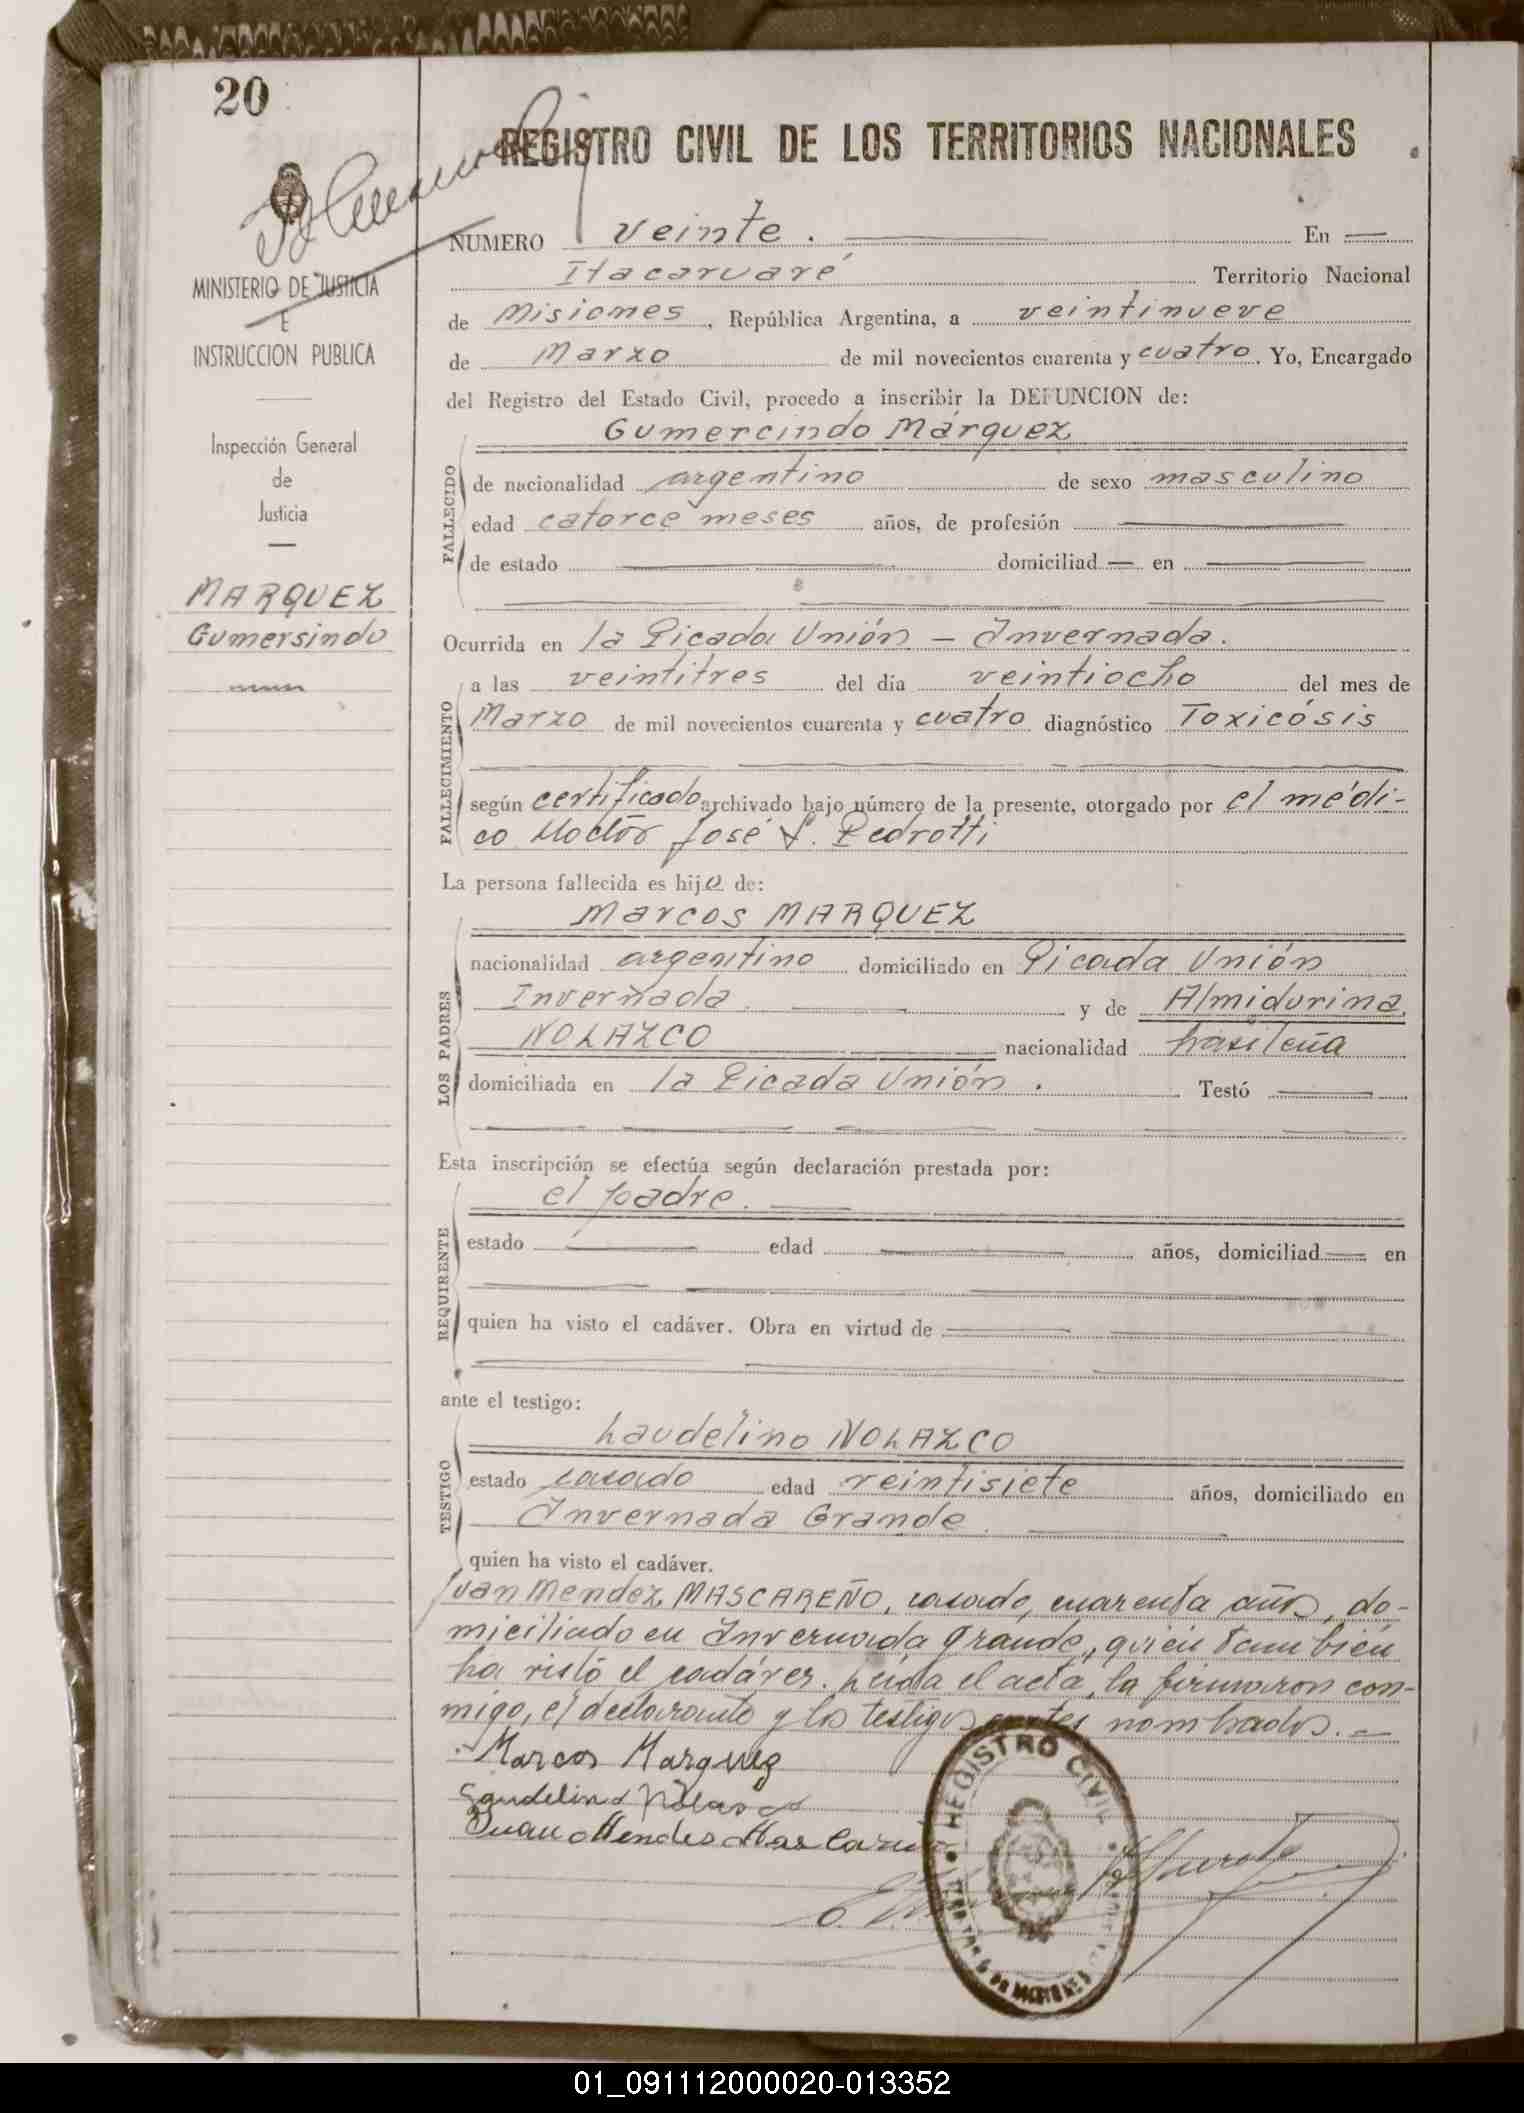 20
REGISTRO CIVIL DE LOS TERRITORIOS NACIONALES
MINISTERIO DE JUSTICIA
E
INSTRUCCION PUBLICA
Inspección General
de
Justicia
MARQUEZ
Gumersindo
NUMERO veinte. En
Itacaruaré Territorio Nacional
de Misiones, República Argentina, a veintinueve
de Marzo de mil novecientos cuarenta y cuatro. Yo, Encargado
del Registro del Estado Civil, procedo a inscribir la DEFUNCION de:
Gumercindo Márquez
FALLECIDO
de nacionalidad argentino de sexo masculino
edad catorce meses años, de profesión
de estado domiciliad en
Ocurrida en la Picada Unión - Invernada.
FALLECIMIENTO
a las veintitres del día veintiocho del mes de
Marzo de mil novecientos cuarenta y cuatro diagnóstico Toxicósis
según certificado archivado bajo número de la presente, otorgado por el médi-
co Doctor José P. Pedrotti
La persona fallecida es hijo de:
LOS PADRES
Marcos MARQUEZ
nacionalidad argentino domiciliado en Picada Unión
Invernada. y de Almidorina
NOLAZCO nacionalidad brasileña
domiciliada en la Picada Unión. Testó
Esta inscripción se efectúa según declaración prestada por:
REQUIRENTE
el padre.
estado edad años, domiciliad en
quien ha visto el cadáver. Obra en virtud de
ante el testigo:
TESTIGO
Laudelino NOLAZCO
estado casado edad veintisiete años, domiciliado en
Invernada Grande.
quien ha visto el cadáver.
Juan Mendez MASCAREÑO, casado, cuarenta años, do-
miciliado en Invernada Grande, quien tambien
ha visto el cadáver. Leída el acta, la firmaron con-
migo, el declarante y los testigos antes nombrados.-
Marcos Marquez
Laudelino Nolasco
Juan Mendes
REGISTRO CIVIL
01_091112000020-013352